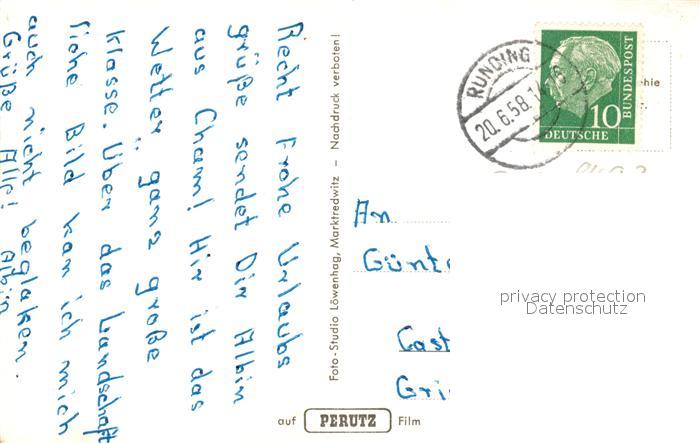 Recht Frohe Urlaubs
grüße sendet Dir Albin
aus Cham! Hir ist das
Wetter ganz große
Klasse. Über das Landschaft
liche Bild kan ich mich
auch nicht beglaken.
Grüße Alle! Albin
Foto-Studio Löwenhag, Marktredwitz – Nachdruck verboten!
auf PERUTZ Film
RUNDING
20.6.58.
10
DEUTSCHE
BUNDESPOST
An
Günt
Gast
Gri
privacy protection
Datenschutz